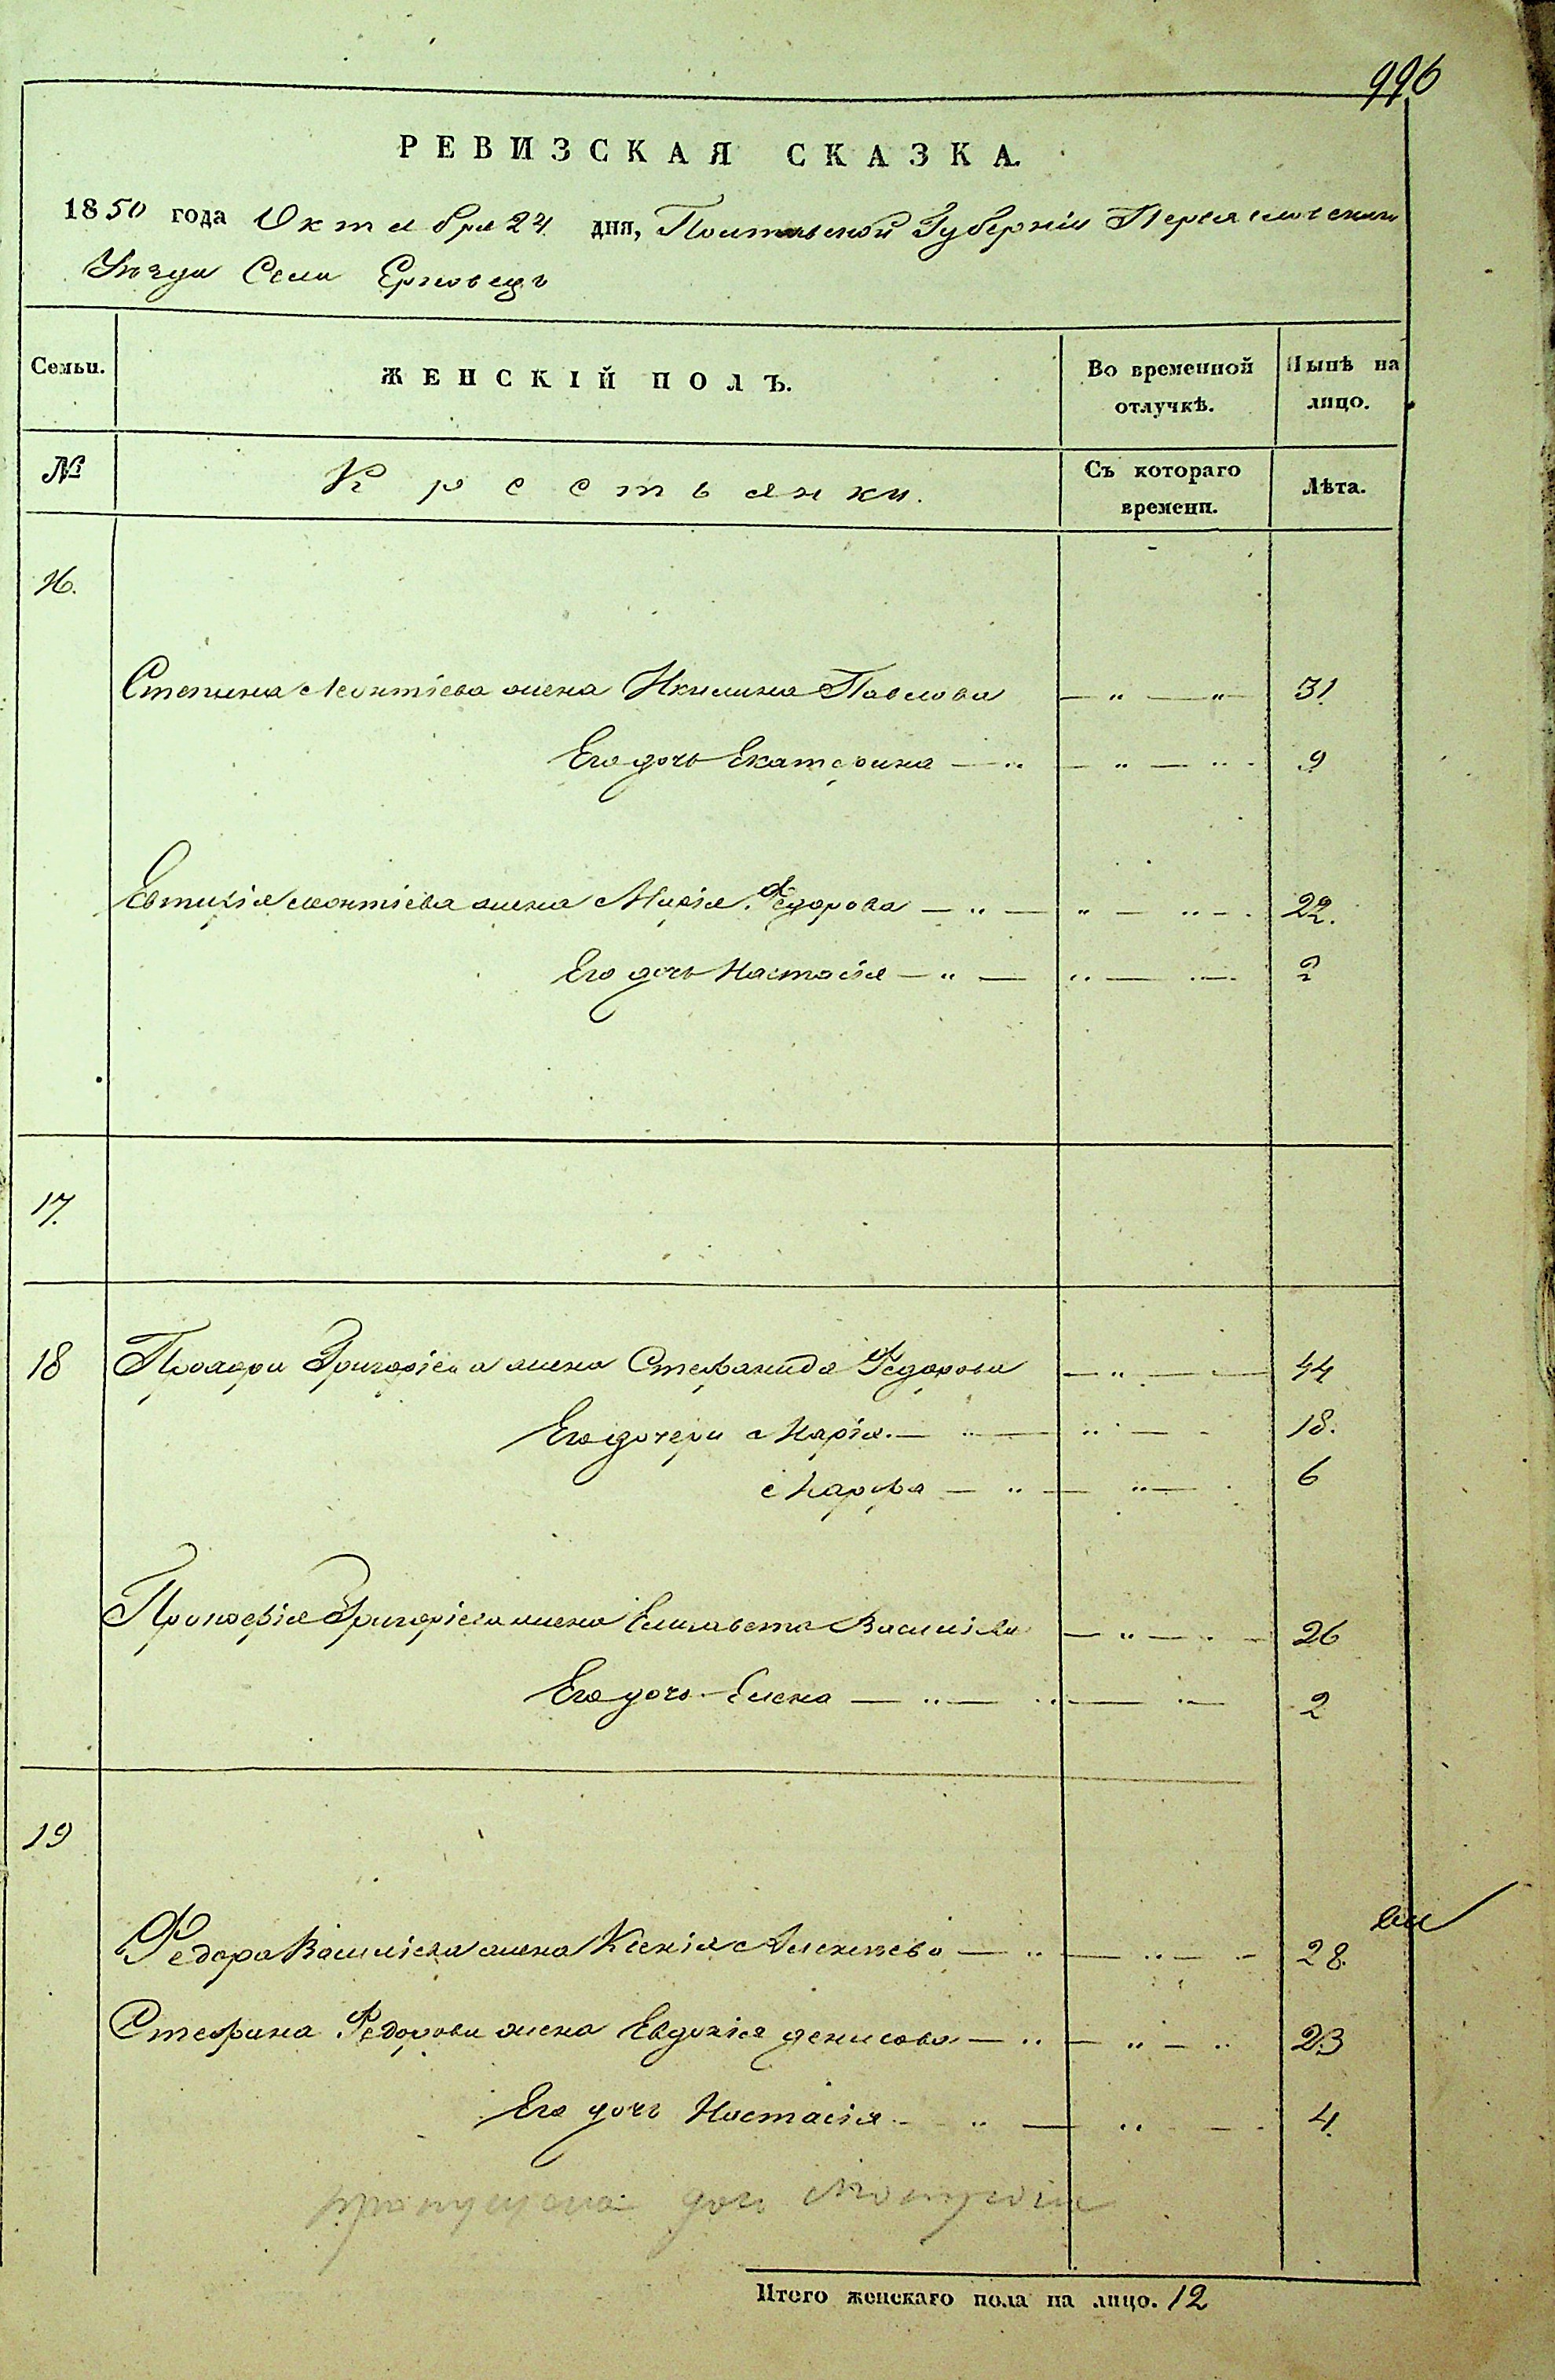 996
РЕВИЗСКАЯ СКАЗКА.
1850 года Октября 24 дня, Полтавской Губерніи Переяславского
Уезда Села Ерковецъ
Семьи.
ЖЕНСКІЙ ПОЛЪ.
Во временной отлучкѣ.
Нынѣ на лицо.
№
Крестьянки.
Съ котораго времени.
Лѣта.
16.
Степана Леонтіева жена Акилина Павлова — " — " — 31
Его дочь Екатерина — " — " — " — 9
Евтихія Леонтіева жена Марія Федорова — " — " — " — 22.
Его дочь Настасія — " — " — 2
17.
18 Прохора Григоріева жена Стефанида Федорова — " — 44
Его дочери Марія. — " — " — 18.
Марфа — " — " — 6
Прокофія Григоріева жена Елисавета Василіева — " — 26
Его дочь Елена — " — " — 2
19
Федора Василіева жена Ксенія Алексеева — " — " — 28.
Стефана Федорова жена Евдокія Денисова — " — " — " 23
Его дочь Настасія — " — " — 4.
пропущена дочь
Итого женскаго пола на лицо. 12